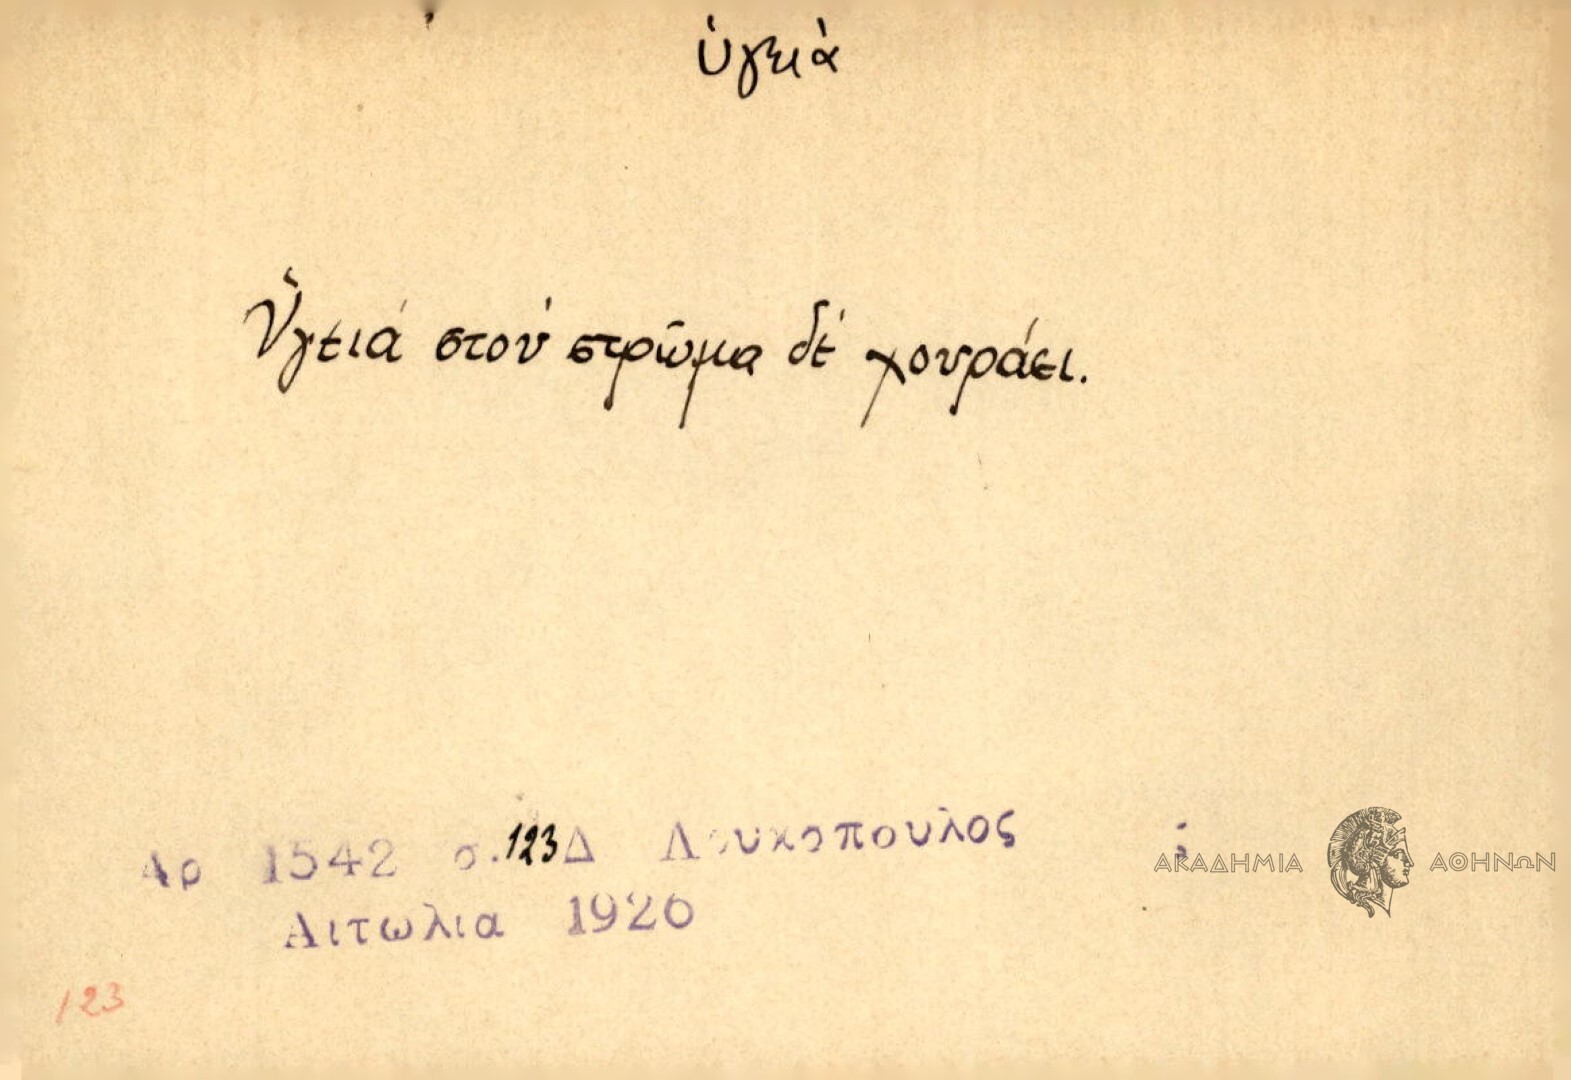 ὑγειὰ
Ὑγειά στού στρῶμα δέ χουράει.
Αρ 1542 σ. 123 Δ Λουκοπουλος
Αιτωλια 1920
ΑΚΑΔΗΜΙΑ ΑΘΗΝΩΝ
123